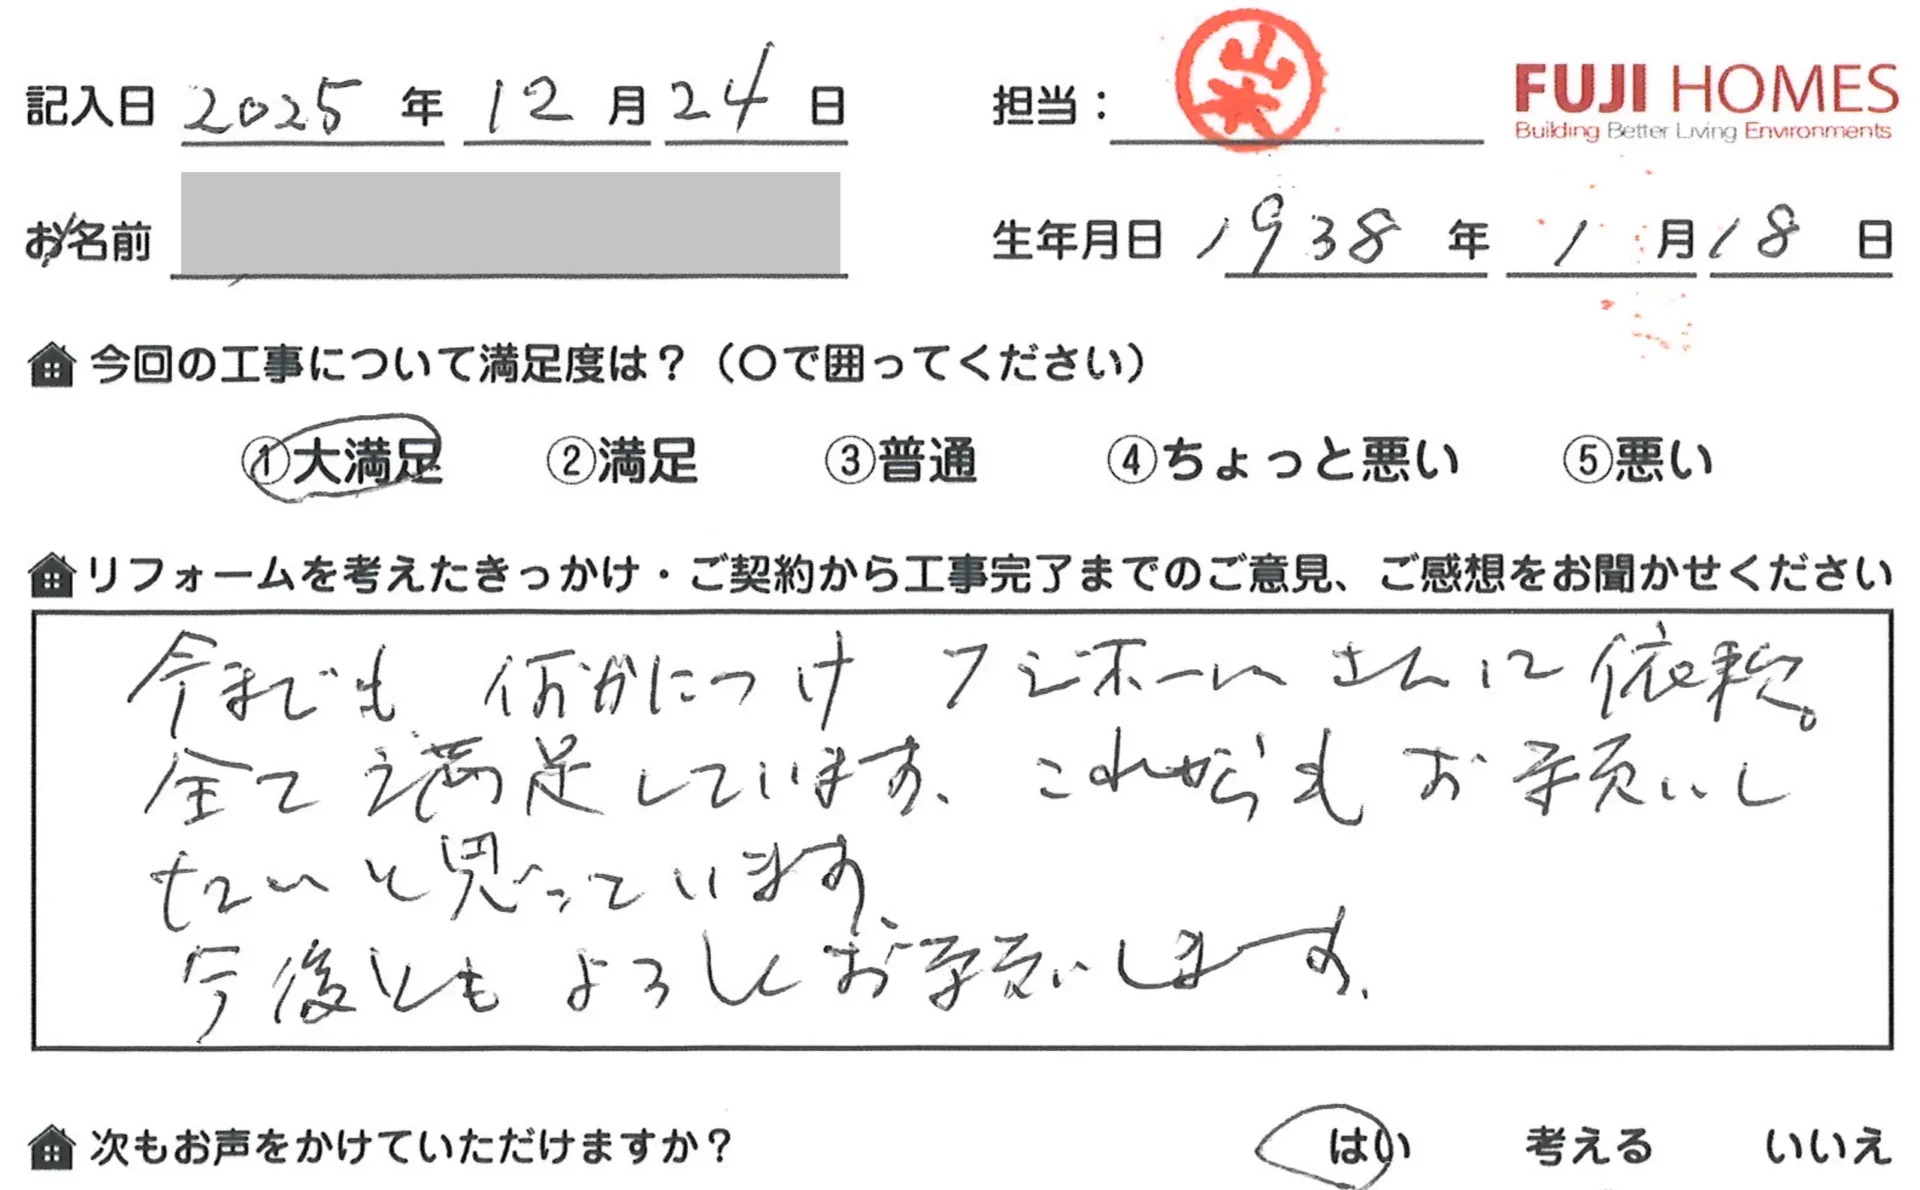 記入日 2025 年 12 月 24 日 担当： 山本 FUJI HOMES
Building Better Living Environments
お名前 生年月日 1938 年 1 月 18 日
今回の工事について満足度は？（〇で囲ってください）
①大満足 ②満足 ③普通 ④ちょっと悪い ⑤悪い
リフォームを考えたきっかけ・ご契約から工事完了までのご意見、ご感想をお聞かせください
今までも 何かにつけ フジホームさんに依頼。
全て満足しています。これからもお願いし
たいと思っています。
今後ともよろしくお願いします。
次もお声をかけていただけますか？ はい 考える いいえ